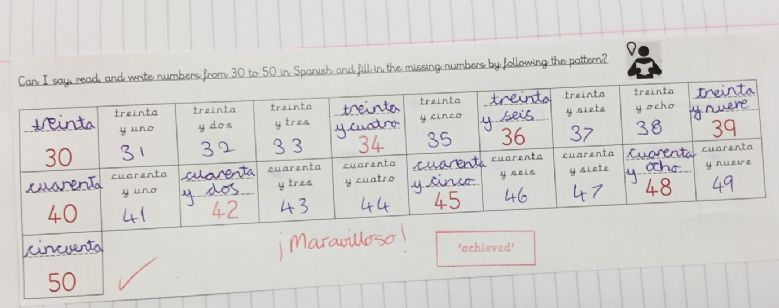 Can I say, read, and write numbers from 30 to 50 in Spanish and fill in the missing numbers by following the pattern?
treinta
30
treinta
y uno
31
treinta
y dos
32
treinta
y tres
33
treinta
y cuatro
34
treinta
y cinco
35
treinta
y seis
36
treinta
y siete
37
treinta
y ocho
38
treinta
y nueve
39
cuarenta
40
cuarenta
y uno
41
cuarenta
y dos
42
cuarenta
y tres
43
cuarenta
y cuatro
44
cuarenta
y cinco
45
cuarenta
y seis
46
cuarenta
y siete
47
cuarenta
y ocho
48
cuarenta
y nueve
49
cincuenta
50
¡Maravilloso!
'achieved'